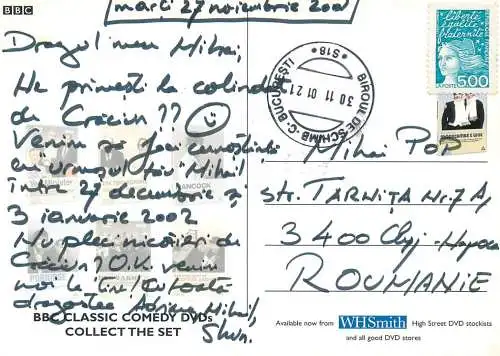 BBC
marți 27 noiembrie 2001
Dragul meu Mihai,
Ne primești la colindat
de Crăciun ??
Venim să facem cunoștință
cu urmașul tău Mihail
între 27 decembrie și
3 ianuarie 2002
Nu pleci nicăieri de
Crăciun? O.K. venim
noi la tine! Cu toată
dragostea Adrian, Mihail,
BBC CLASSIC COMEDY DVDs
COLLECT THE SET
BUCUREȘTI
BIROUL DE SCHIMB
S18
30 11 01 21
liberté
égalité
fraternité
LA POSTE
5,00
Mihai Pop
str. TARNIȚA Nr. 7A,
3400 Cluj-Napoca
ROUMANIE
Available now from WHSmith High Street DVD stockists
and all good DVD stores
Minister
HANCOCK
PORRIDGE